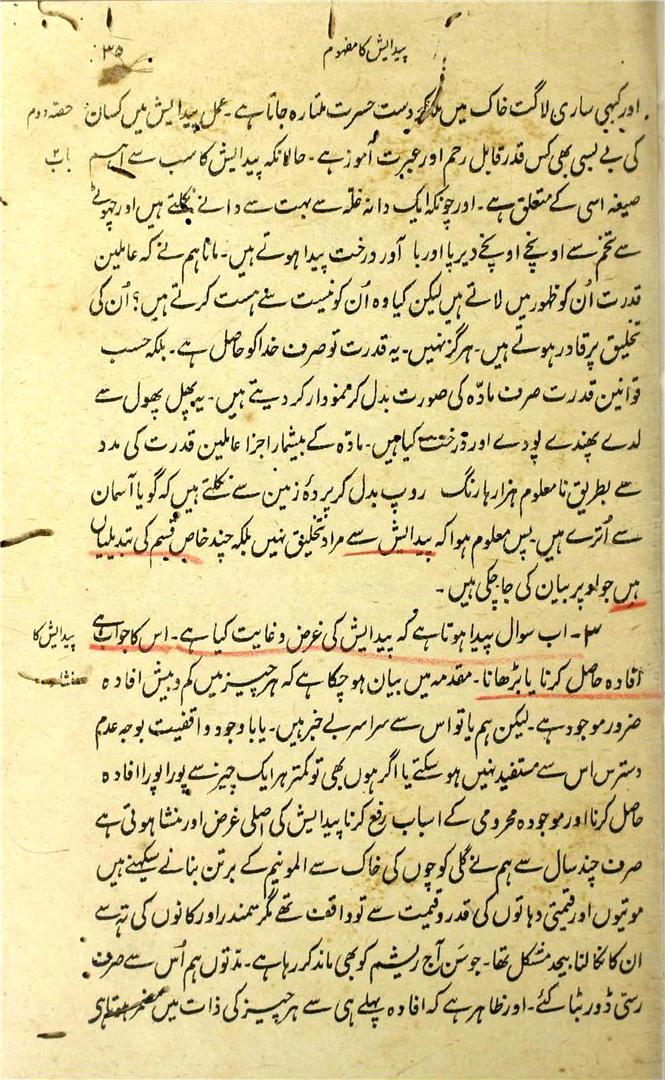 پیدایش کا مفہوم
۳۵
اور کبھی ساری لاگت خاک میں ملا کر دست حسرت ملتا رہ جاتا ہے۔ عمل پیدایش میں کسان
حصّہ دوم
کی بے بسی بھی کس قدر قابل رحم اور عبرت آموز ہے۔ حالانکہ پیدایش کا سب سے اہم
باب ۲
صیغہ اسی کے متعلق ہے۔ اور چونکہ ایک دانہ غلّہ سے بہت سے دانے نکلتے ہیں اور چہوٹے
سے تخم سے اونچے اونچے دیرپا اور با آور درخت پیدا ہوتے ہیں۔ مانا ہم نے کہ عاملین
قدرت اُن کو ظہور میں لاتے ہیں لیکن کیا وہ اُن کو نیست سے ہست کرتے ہیں؟ اُن کی
تخلیق پر قادر ہوتے ہیں۔ ہرگز نہیں۔ یہ قدرت تو صرف خدا کو حاصل ہے۔ بلکہ حسب
قوانین قدرت صرف مادّہ کی صورت بدل کر نمودار کر دیتے ہیں۔ یہ پھل پھول سے
لدے پھندے پودے اور درخت کیا ہیں۔ مادّہ کے بیشمار اجزا عاملین قدرت کی مدد
سے بطریق نامعلوم ہزارہا رنگ روپ بدل کر پردۂ زمین سے نکلتے ہیں کہ گویا آسمان
سے اُترے ہیں۔ پس معلوم ہوا کہ پیدایش سے مراد تخلیق نہیں بلکہ چند خاص قسم کی تبدیلیاں
ہیں جو اوپر بیان کی جا چکی ہیں۔
۳۔ اب سوال پیدا ہوتا ہے کہ پیدایش کی غرض و غایت کیا ہے۔ اس کا جواب ہے
پیدایش کا
افادہ حاصل کرنا یا بڑھانا۔ مقدمہ میں بیان ہو چکا ہے کہ ہر چیز میں کم و بیش افادہ
منشا
ضرور موجود ہے۔ لیکن ہم یا تو اس سے سراسر بے خبر ہیں۔ یا باوجود واقفیت بوجہ عدم
دسترس اس سے مستفید نہیں ہو سکتے یا اگر ہوں بھی تو کمتر ہر ایک چیز سے پورا پورا افادہ
حاصل کرنا اور موجودہ محرومی کے اسباب رفع کرنا پیدایش کی اصلی غرض اور منشا ہوتی ہے
صرف چند سال سے ہم نے گلی کوچوں کی خاک سے المونیم کے برتن بنانے سیکہنے ہیں
موتیوں اور قیمتی دہاتوں کی قدر و قیمت سے تو واقف تھے مگر سمندر اور کانوں کی تہ سے
ان کا نکالنا بیحد مشکل تھا۔ جو سَن آج ریشم کو بھی ماند کر رہا ہے۔ مدّتوں ہم اُس سے صرف
رسّی ڈور بٹا کئے۔ اور ظاہر ہے کہ افادہ پہلے ہی سے ہر چیز کی ذات میں